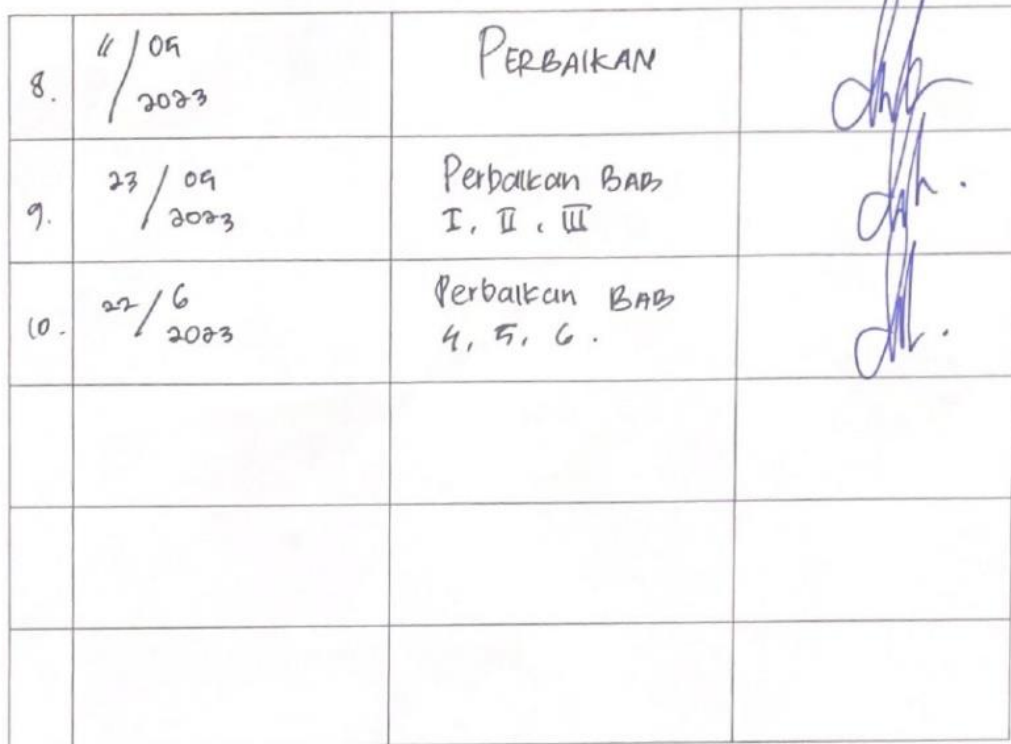 8.
11 / 09
2023
PERBAIKAN
9.
23 / 09
2023
Perbaikan BAB
I, II, III
10.
22 / 6
2023
Perbaikan BAB
4, 5, 6.